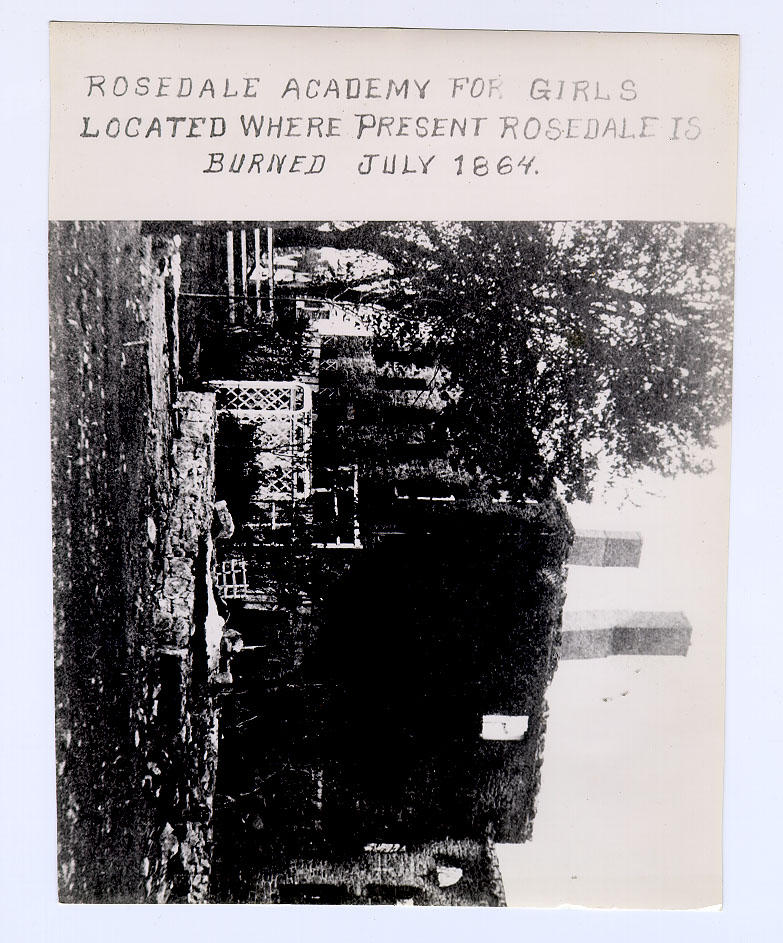 ROSEDALE ACADEMY FOR GIRLS
LOCATED WHERE PRESENT ROSEDALE IS
BURNED JULY 1864.